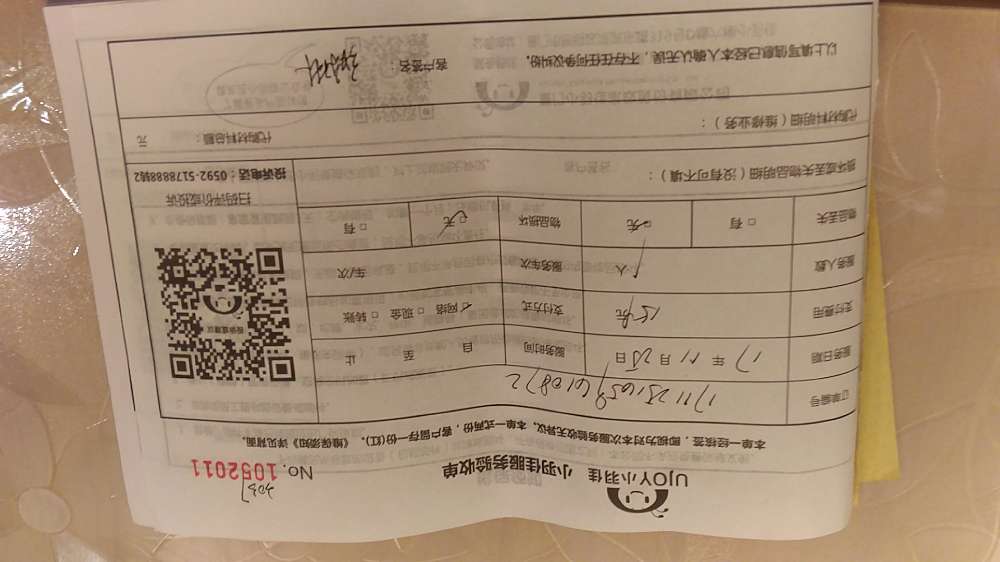 UJOY小羽佳 小羽佳服务验收单
NO. 1052011
3037
本单一经核签，即视为对本次服务验收无异议。本单一式两份，客户留存一份(红)，《维保须知》详见背面。
订单编号
服务日期 17年11月25日 服务时间 自 至 止
支付费用 支付方式 网络 □ 现金 □ 转账
服务人数 1人 服务车次 车/次
物品丢失 □ 有 □ 无 物品损坏 □ 无 □ 有
扫码评价或投诉
投诉电话：0592-5178888转2
损坏或丢失物品明细（没有可不填）：
代购材料明细（维修业务）：
代购材料总额： 元
以上填写信息已经本人确认无误，不存在任何争议纠纷。
客户签名：